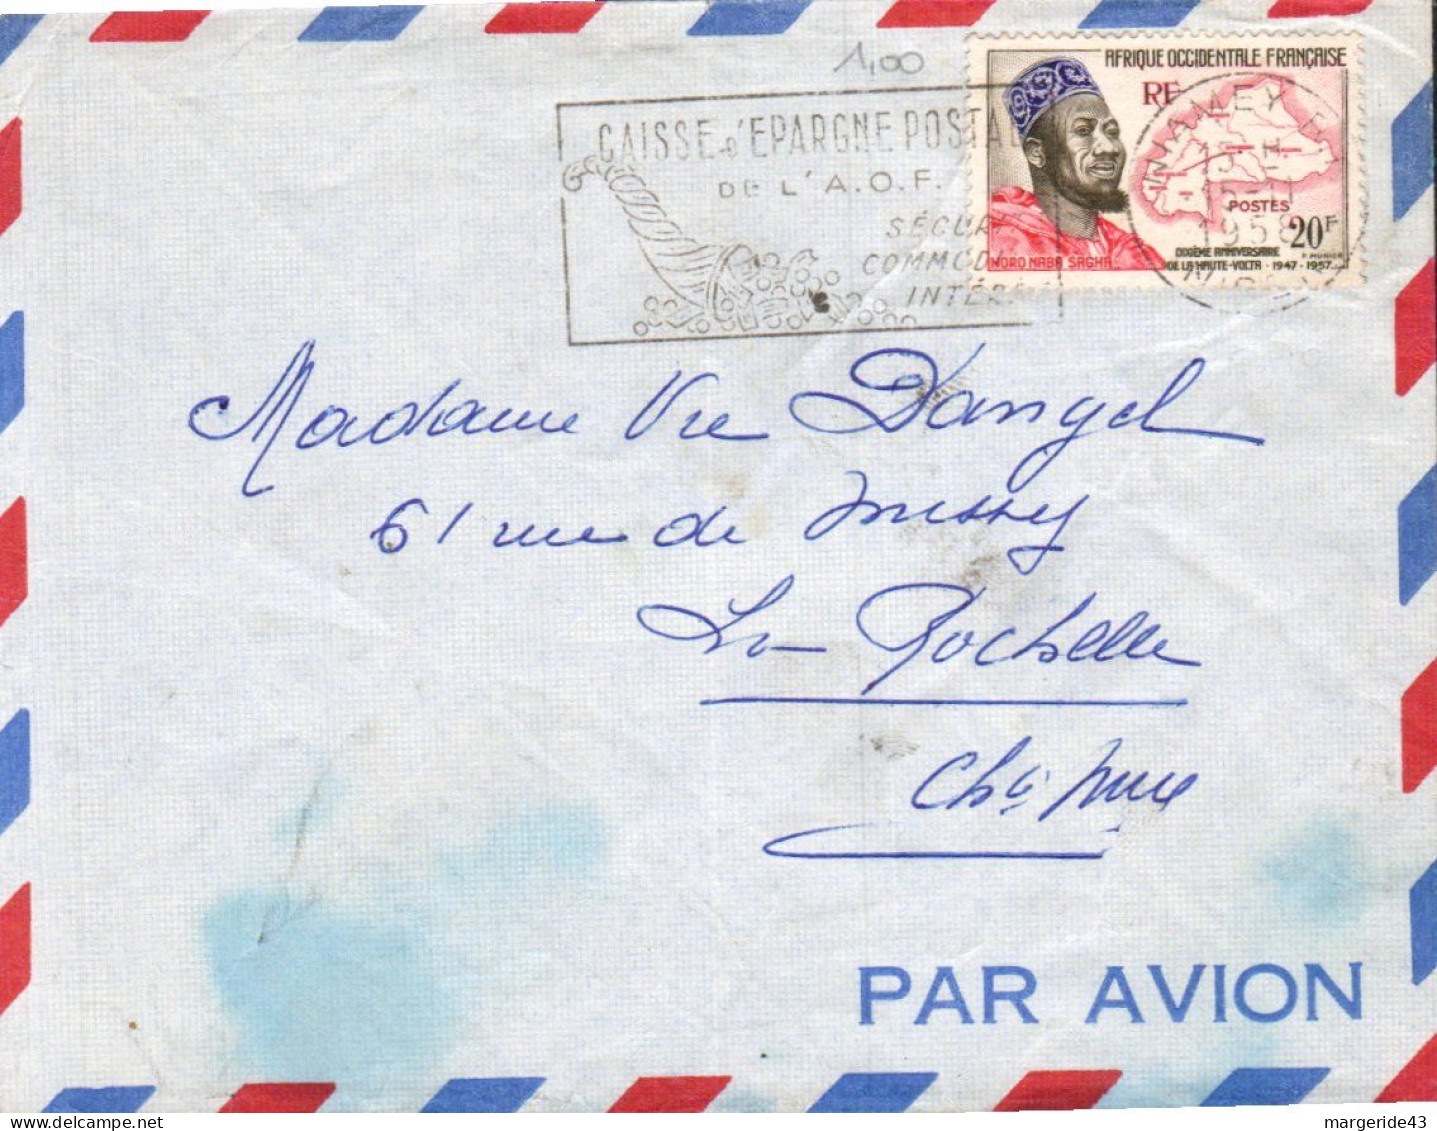 1,00
AFRIQUE OCCIDENTALE FRANÇAISE
RF
POSTES
20F
MORO NABA SAGHA
DIXIÈME ANNIVERSAIRE
DE LA HAUTE-VOLTA - 1947 - 1957
P. MUNIER
NIAMEY
1958
NIGER
CAISSE D'EPARGNE POSTAL
DE L'A.O.F.
SÉCUR
COMMODI
INTÉR
Madame Vve Dangel
61 rue de Missy
La Rochelle
Chte Mme
PAR AVION
margeride43